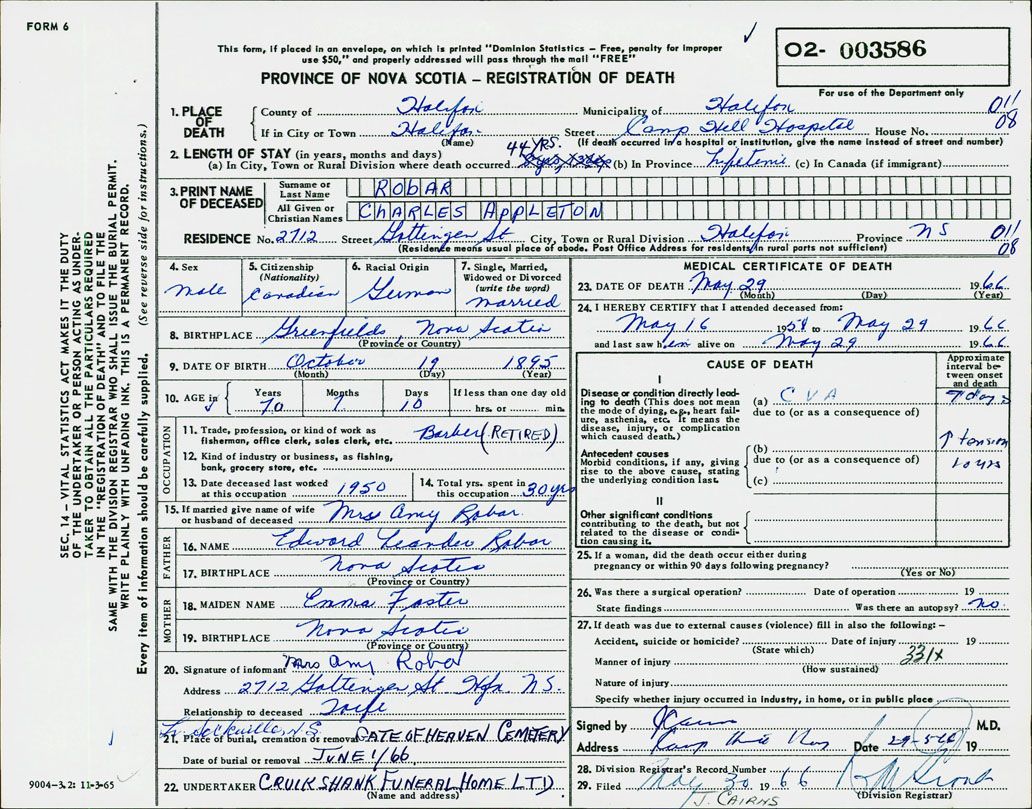 FORM 6
This form, if placed in an envelope, on which is printed "Dominion Statistics – Free, penalty for improper
use $50," and properly addressed will pass through the mail "FREE"
PROVINCE OF NOVA SCOTIA – REGISTRATION OF DEATH
02- 003586
For use of the Department only
1. PLACE OF DEATH
County of Halifax Municipality of Halifax 011
If in City or Town Halifax Street Camp Hill Hospital House No. 08
(Name) (If death occurred in a hospital or institution, give the name instead of street and number)
2. LENGTH OF STAY (in years, months and days) 44 YRS.
(a) In City, Town or Rural Division where death occurred (b) In Province Lifetime (c) In Canada (if immigrant)
3. PRINT NAME OF DECEASED
Surname or Last Name ROBAR
All Given or Christian Names CHARLES APPLETON
RESIDENCE No. 2712 Street Gottingen St City, Town or Rural Division Halifax Province NS 011
08
(Residence means usual place of abode. Post Office Address for residents in rural parts not sufficient)
4. Sex
male
5. Citizenship
(Nationality)
Canadian
6. Racial Origin
German
7. Single, Married,
Widowed or Divorced
(write the word)
married
8. BIRTHPLACE Greenfields, Nova Scotia
(Province or Country)
9. DATE OF BIRTH October 19 1895
(Month) (Day) (Year)
10. AGE in Years Months Days If less than one day old
70 7 10 hrs. or min.
OCCUPATION
11. Trade, profession, or kind of work as
fisherman, office clerk, sales clerk, etc. Barber (RETIRED)
12. Kind of industry or business, as fishing,
bank, grocery store, etc.
13. Date deceased last worked
at this occupation 1950
14. Total yrs. spent in
this occupation 30 yrs
15. If married give name of wife
or husband of deceased Mrs Amy Robar
FATHER
16. NAME Edward Leander Robar
17. BIRTHPLACE Nova Scotia
(Province or Country)
MOTHER
18. MAIDEN NAME Emma Foster
19. BIRTHPLACE Nova Scotia
(Province or Country)
20. Signature of informant Mrs Amy Robar
Address 2712 Gottingen St Hfx. N.S.
Relationship to deceased Wife
Sackville, N.S.
21. Place of burial, cremation or removal GATE OF HEAVEN CEMETERY
Date of burial or removal JUNE 1/66
22. UNDERTAKER CRUIKSHANK FUNERAL HOME LTD
(Name and address)
MEDICAL CERTIFICATE OF DEATH
23. DATE OF DEATH May 29 1966
(Month) (Day) (Year)
24. I HEREBY CERTIFY that I attended deceased from:
May 16 to May 29 1966
and last saw him alive on May 29 1966
CAUSE OF DEATH
Approximate
interval be-
tween onset
and death
I
Disease or condition directly lead-
ing to death (This does not mean
the mode of dying, e.g., heart fail-
ure, asthenia, etc. It means the
disease, injury, or complication
which caused death.)
(a) CVA
due to (or as a consequence of)
days
Antecedent causes
Morbid conditions, if any, giving
rise to the above cause, stating
the underlying condition last.
(b)
due to (or as a consequence of)
(c)
↑ tension
10 yrs
II
Other significant conditions
contributing to the death, but not
related to the disease or condi-
tion causing it.
25. If a woman, did the death occur either during
pregnancy or within 90 days following pregnancy?
(Yes or No)
26. Was there a surgical operation? Date of operation 19
State findings Was there an autopsy? no.
27. If death was due to external causes (violence) fill in also the following: –
Accident, suicide or homicide? Date of injury 19
(State which)
331X
Manner of injury
(How sustained)
Nature of injury
Specify whether injury occurred in industry, in home, or in public place
Signed by M.D.
Address Camp Hill Hos Date 29-5-66 19
28. Division Registrar's Record Number
29. Filed May 30 1966
(Division Registrar)
J. CAIRNS
SEC. 14 – VITAL STATISTICS ACT MAKES IT THE DUTY
OF THE UNDERTAKER OR PERSON ACTING AS UNDER-
TAKER TO OBTAIN ALL THE PARTICULARS REQUIRED
IN THE "REGISTRATION OF DEATH" AND TO FILE THE
SAME WITH THE DIVISION REGISTRAR WHO SHALL ISSUE THE BURIAL PERMIT.
WRITE PLAINLY WITH UNFADING INK. THIS IS A PERMANENT RECORD.
Every item of information should be carefully supplied. (See reverse side for instructions.)
9004-3.2: 11-3-65